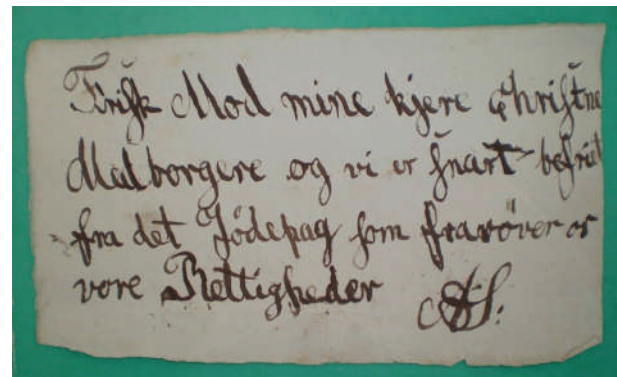 Frisk Mod mine kjere Christne
Malborgere og vi er snart befriet
fra det Jödepag som fraröver os
vore Rettigheder